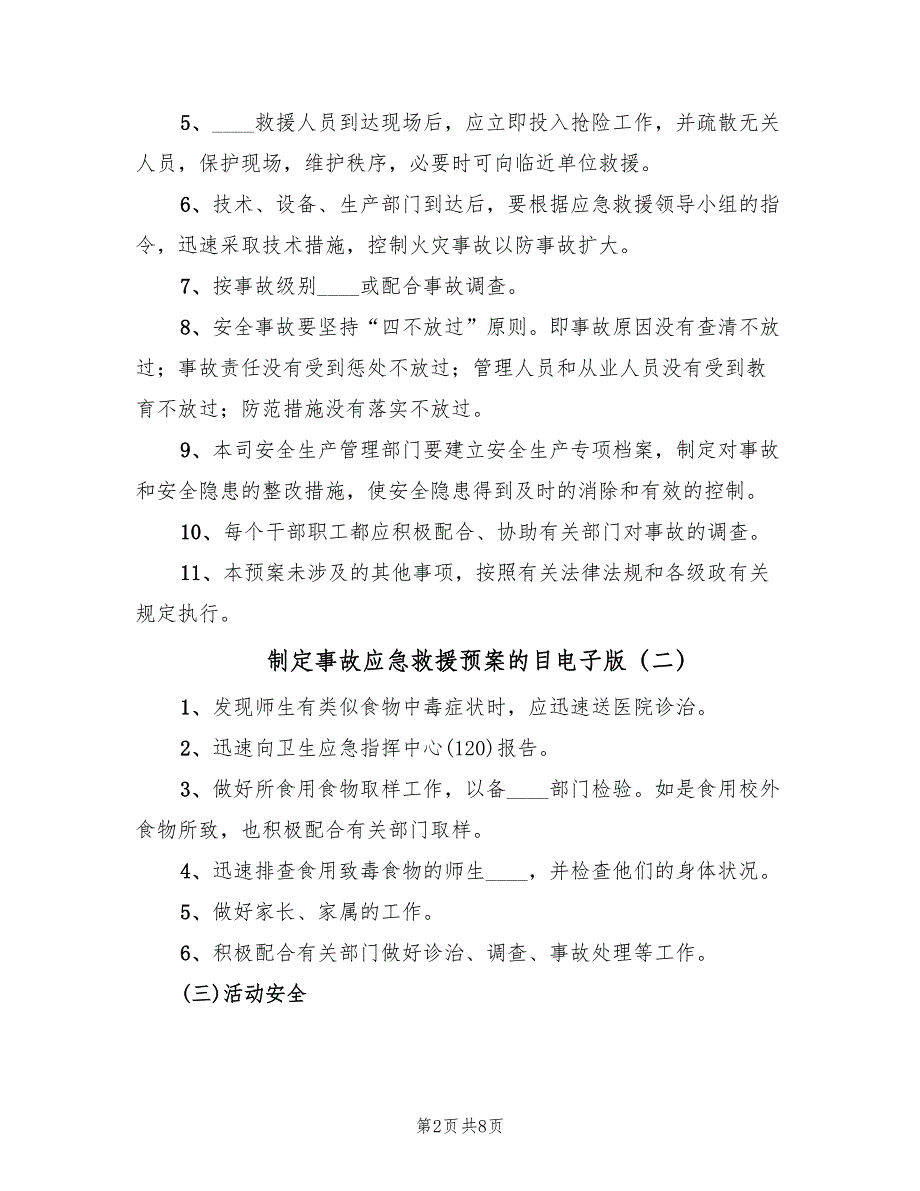 5、____救援人员到达现场后，应立即投入抢险工作，并疏散无关
人员，保护现场，维护秩序，必要时可向临近单位救援。
6、技术、设备、生产部门到达后，要根据应急救援领导小组的指
令，迅速采取技术措施，控制火灾事故以防事故扩大。
7、按事故级别____或配合事故调查。
8、安全事故要坚持“四不放过”原则。即事故原因没有查清不放
过；事故责任没有受到惩处不放过；管理人员和从业人员没有受到教
育不放过；防范措施没有落实不放过。
9、本司安全生产管理部门要建立安全生产专项档案，制定对事故
和安全隐患的整改措施，使安全隐患得到及时的消除和有效的控制。
10、每个干部职工都应积极配合、协助有关部门对事故的调查。
11、本预案未涉及的其他事项，按照有关法律法规和各级政有关
规定执行。
制定事故应急救援预案的目电子版（二）
1、发现师生有类似食物中毒症状时，应迅速送医院诊治。
2、迅速向卫生应急指挥中心(120)报告。
3、做好所食用食物取样工作，以备____部门检验。如是食用校外
食物所致，也积极配合有关部门取样。
4、迅速排查食用致毒食物的师生____，并检查他们的身体状况。
5、做好家长、家属的工作。
6、积极配合有关部门做好诊治、调查、事故处理等工作。
(三)活动安全
第2页 共8页